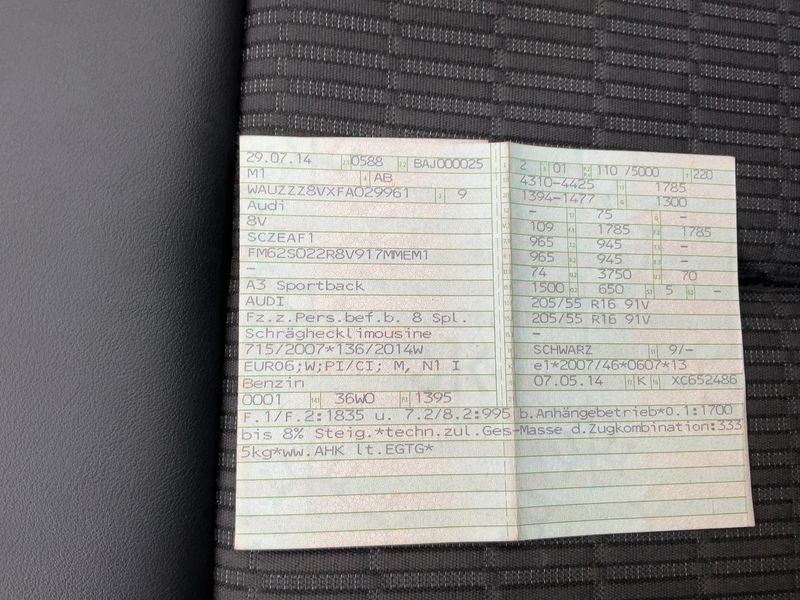 29.07.14 0588 BAJ000025
M1 AB
WAUZZZ8VXFA029961 9
Audi
8V
SCZEAF1
FM62S022R8V917MMEM1
–
A3 Sportback
AUDI
Fz.z.Pers.bef.b. 8 Spl.
Schräghecklimousine
715/2007*136/2014W
EURO6;W;PI/CI; M, N1 I
Benzin
0001 36W0 1395
2 01 110 /5000 220
4310-4425 1785
1394-1477 1300
– 75 –
109 1785 1785
965 945 –
965 945 –
74 3750 70
1500 650 5 –
205/55 R16 91V
205/55 R16 91V
–
SCHWARZ 9/–
e1*2007/46*0607*13
07.05.14 K XC652486
F.1/F.2:1835 u. 7.2/8.2:995 b.Anhängebetrieb*0.1:1700
bis 8% Steig.*techn.zul.Ges-Masse d.Zugkombination:333
5kg*ww.AHK lt.EGTG*